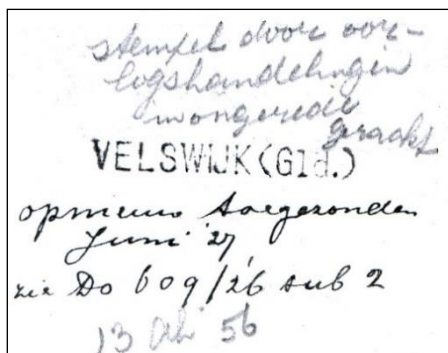 stempel door oor-
logshandelingen
in ongerede
geraakt
VELSWIJK (Gld.)
opnieuw toegezonden
Juni '27
zie Do 609/26 sub 2
13 56